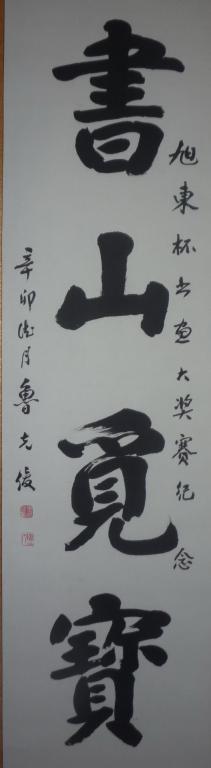 旭東杯书画大奖赛纪念
書山覓寶
辛卯
魯克俊